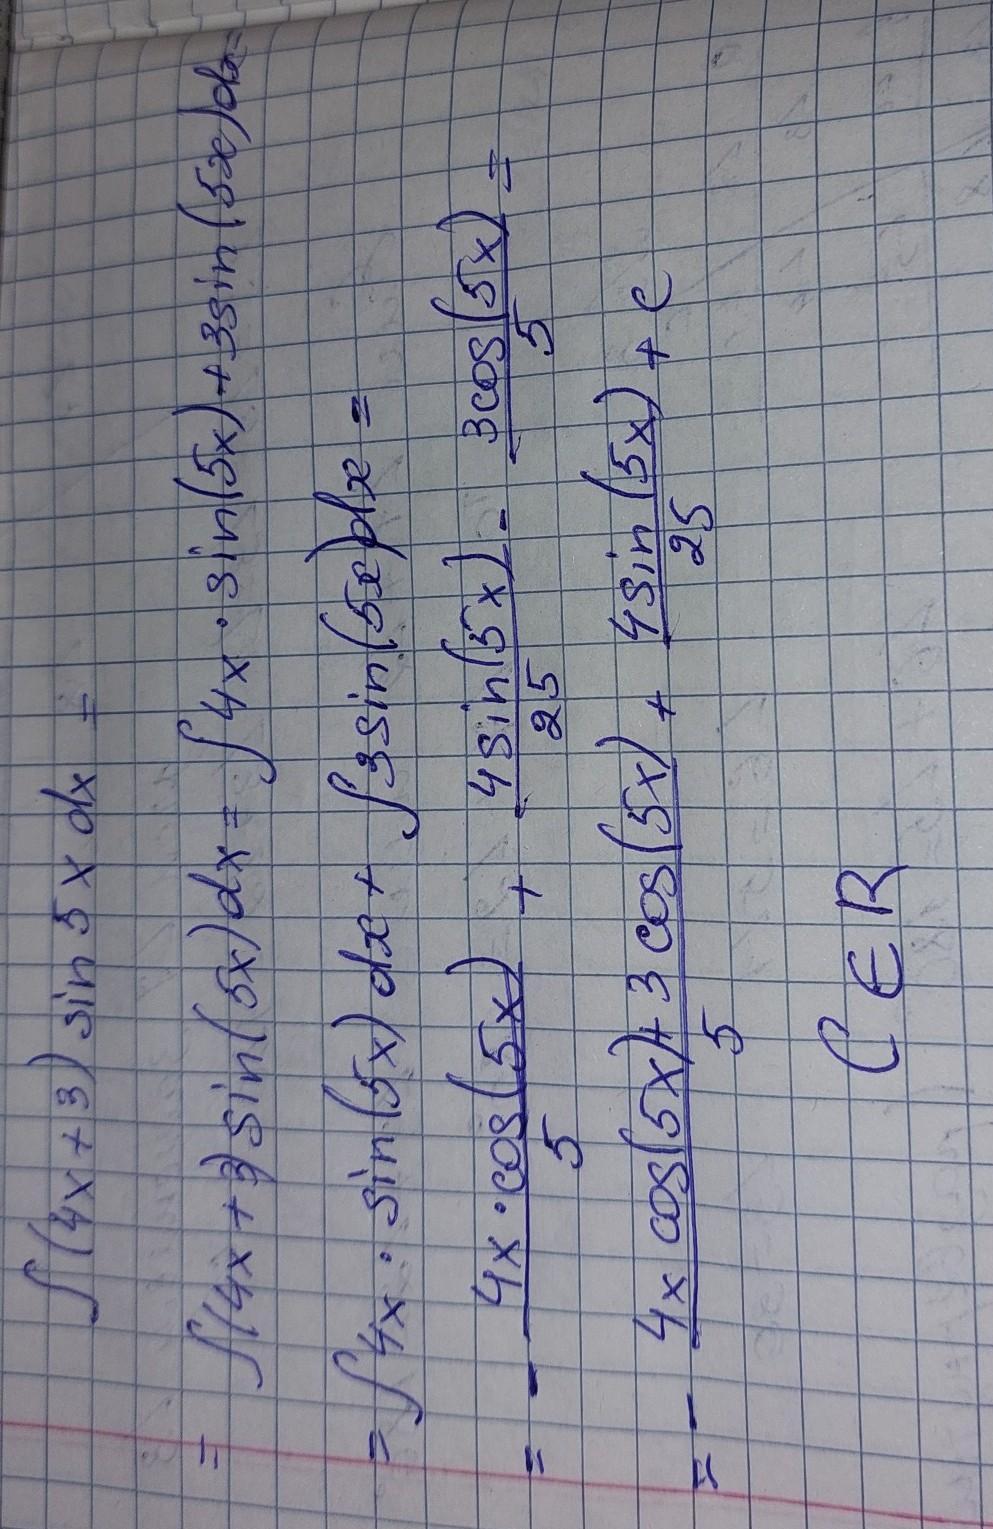 ∫(4x+3) sin 5x dx =
= ∫(4x+3) sin(5x) dx = ∫4x · sin(5x) + 3sin(5x) dx =
= ∫4x · sin(5x) dx + ∫3sin(5x) dx =
= - 4x · cos(5x)/5 + 4sin(5x)/25 - 3cos(5x)/5 =
= - 4x cos(5x) + 3 cos(5x)/5 + 4sin(5x)/25 + c
C ∈ R